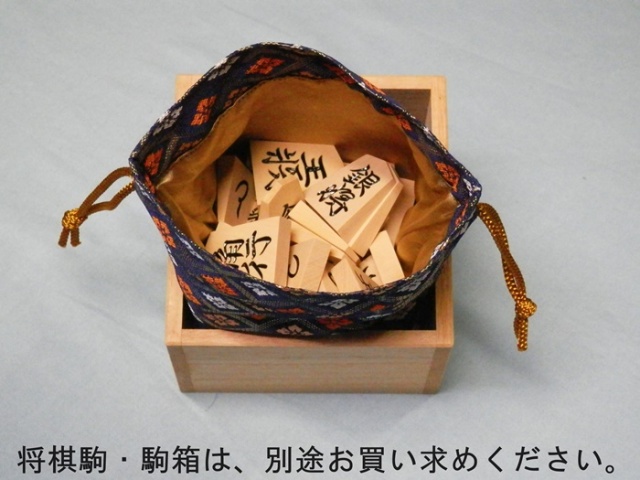 王将
銀将
将棋駒・駒箱は、別途お買い求めください。